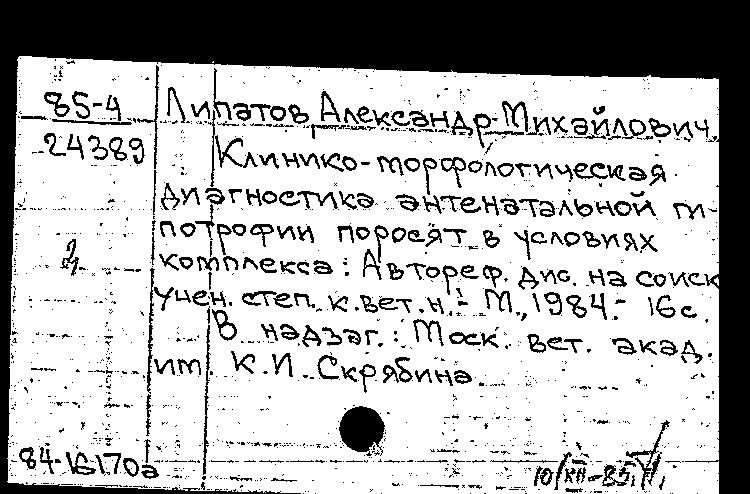 85-4 Липатов Александр Михайлович.
24389 Клинико-морфологическая
диагностика антенатальной ги-
потрофии поросят в условиях
комплекса: Автореф. дис. на соиск
учен. степ. к.вет.н. - М., 1984.- 16с.
В надзаг.: Моск. вет. акад.
им. К.И. Скрябина.
84-16170а 10/XII-85